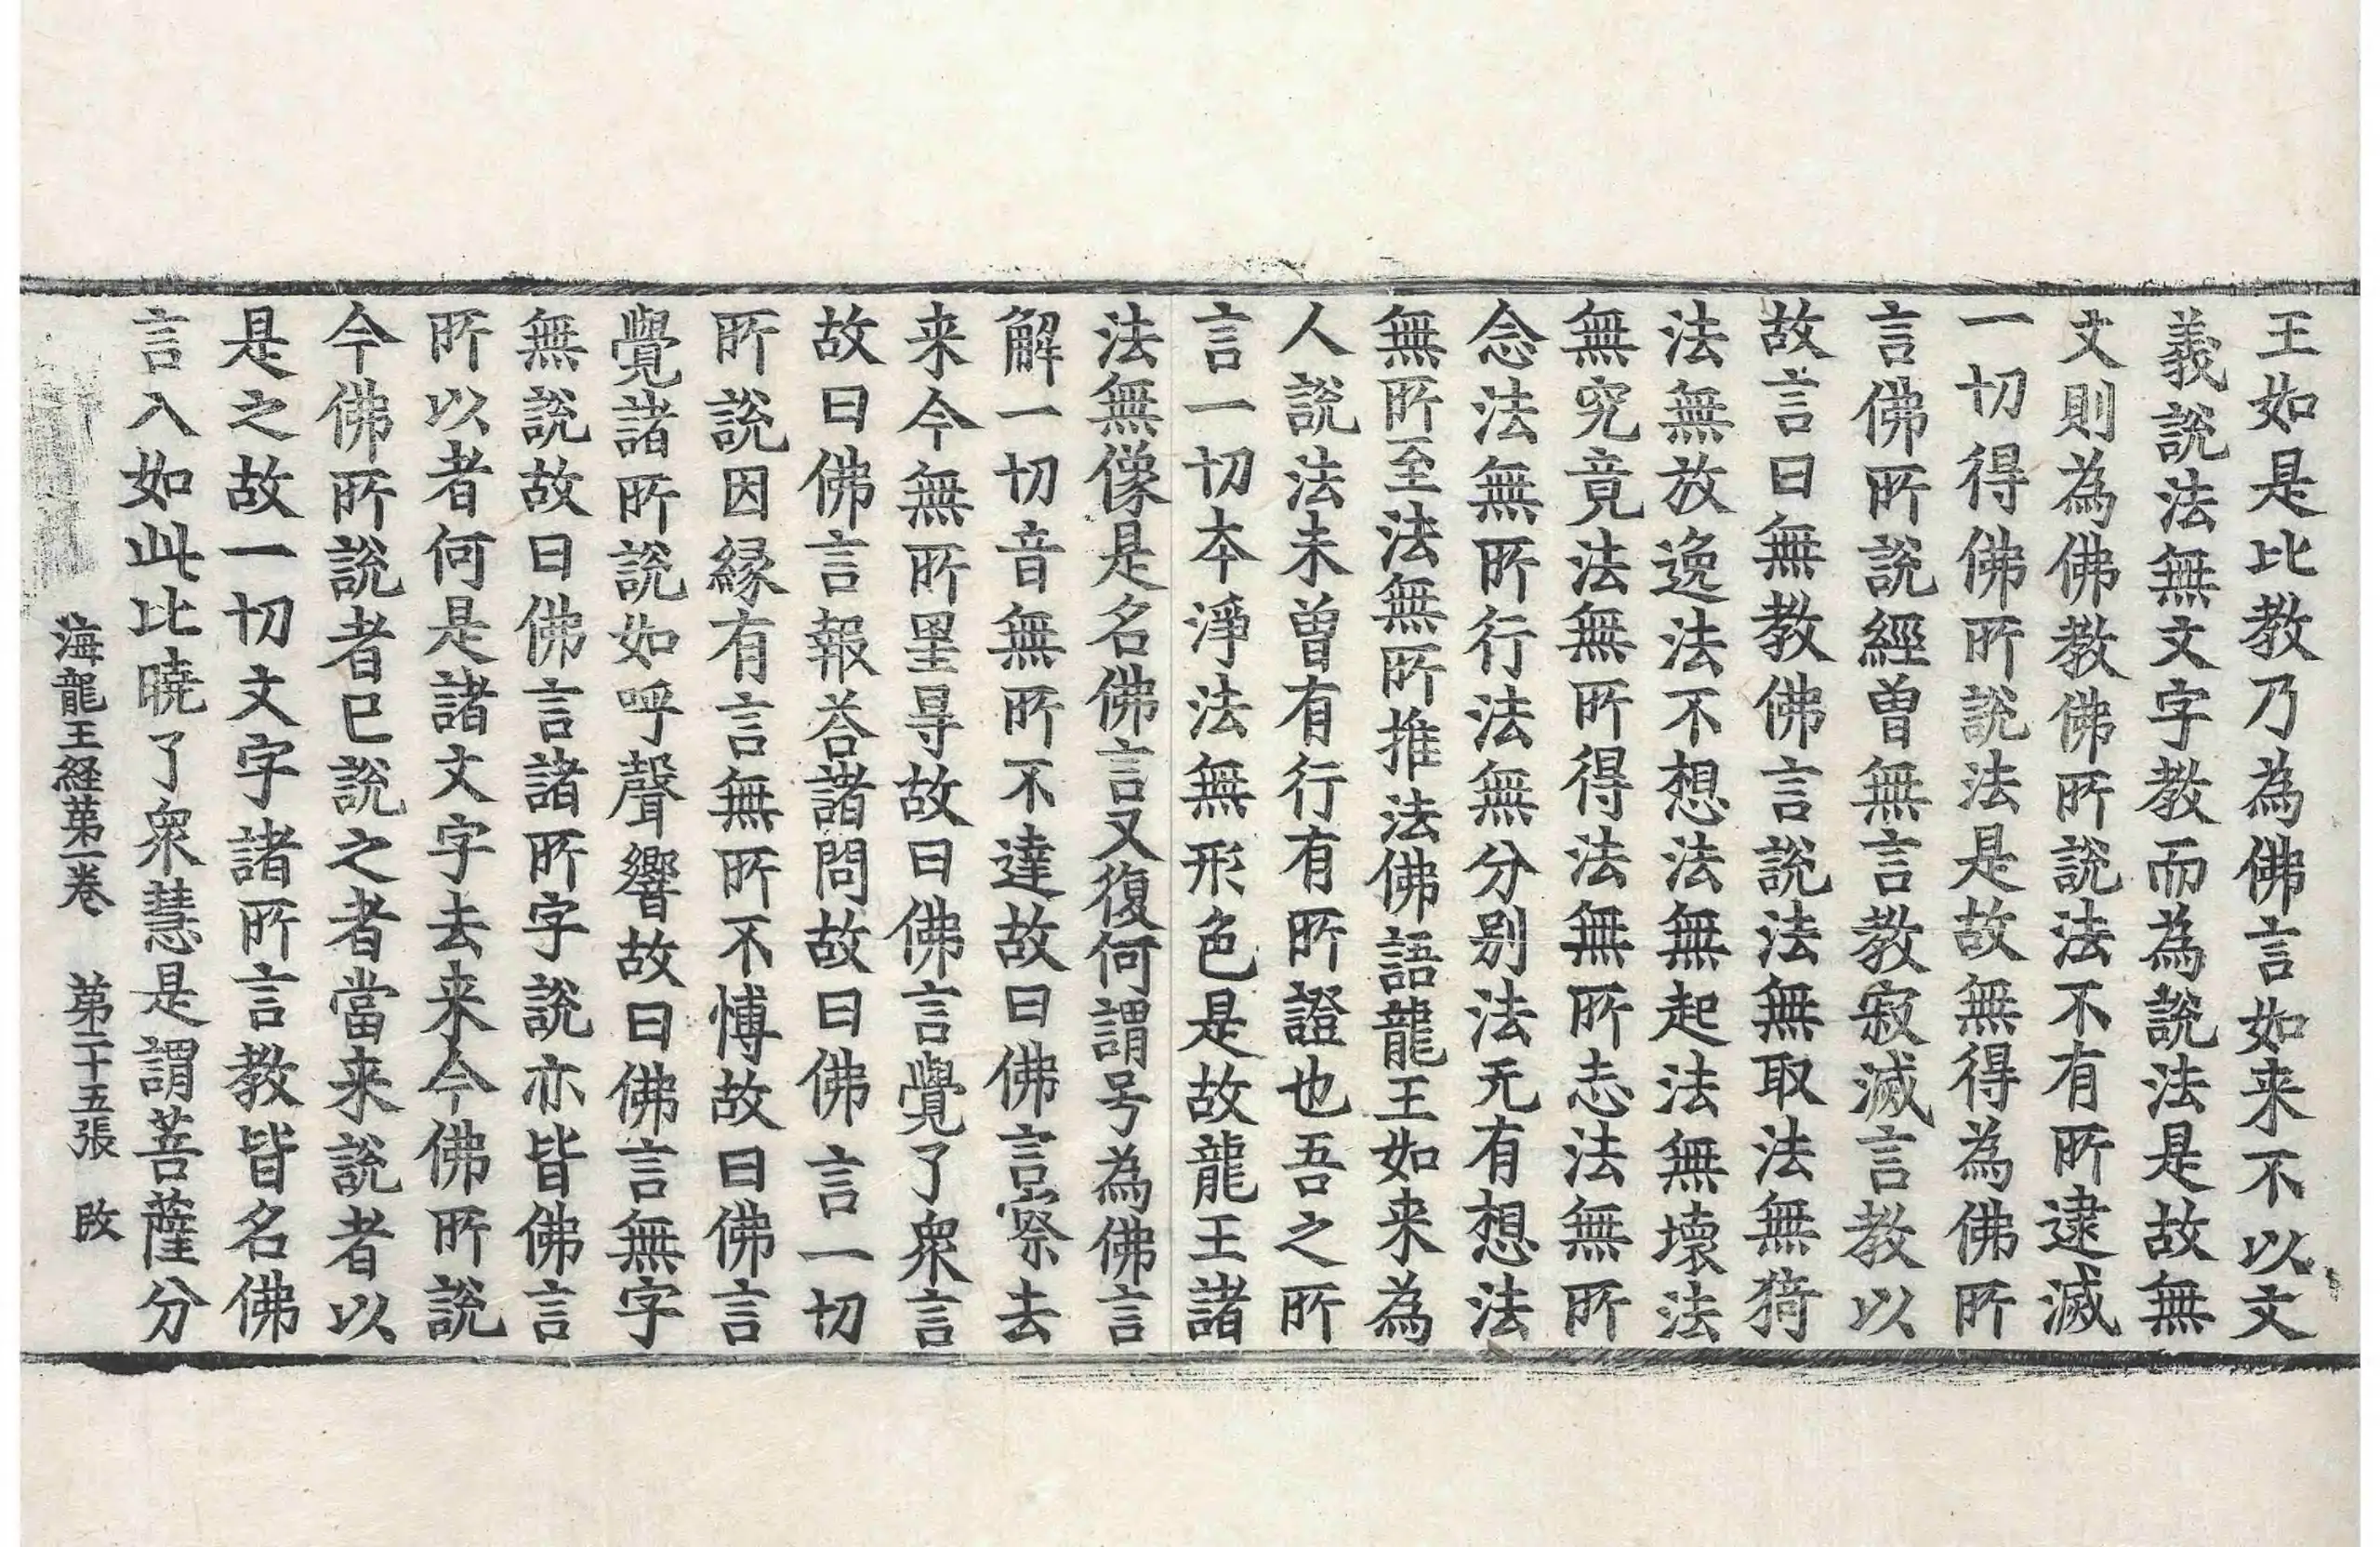 王如是比教乃為佛言如来不以文
義說法無文字教而為說法是故無
文則為佛教佛所說法不有所逮滅
一切得佛所說法是故無得為佛所
言佛所說經曽無言教寂滅言教以
故言曰無教佛言說法無取法無猗
法無放逸法不想法無起法無壞法
無究竟法無所得法無所志法無所
念法無所行法無分别法无有想法
無所至法無所推法佛語龍王如来為
人說法未曽有行有所證也吾之所
言一切夲淨法無形色是故龍王諸
法無像是名佛言又復何謂号為佛言
解一切音無所不達故曰佛言察去
来今無所罣㝵故曰佛言覺了衆言
故曰佛言報荅諸問故曰佛言一切
所說因緣有言無所不愽故曰佛言
覺諸所說如呼聲響故曰佛言無字
無說故曰佛言諸所字說亦皆佛言
所以者何是諸文字去来今佛所說
今佛所說者已說之者當来說者以
是之故一切文字諸所言教皆名佛
言入如此比曉了衆慧是謂菩薩分
海龍王経苐一卷 苐二十五張 改